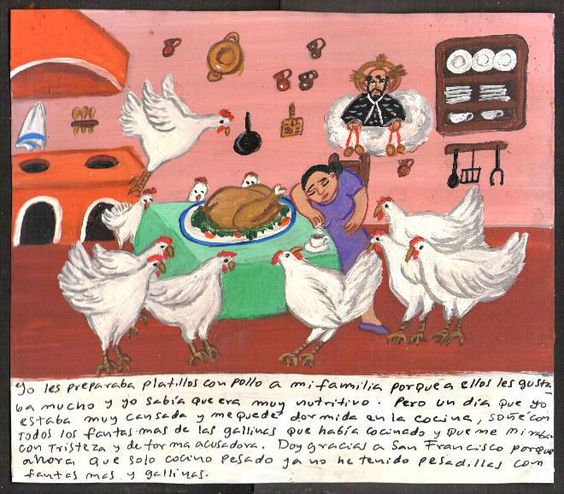 Yo les preparaba platillos con pollo a mi familia porque a ellos les gusta-
ba mucho y yo sabia que era muy nutritivo. Pero un dia que yo
estaba muy cansada y me quede dormida en la cocina, soñe con
todos los fantas-mas de las gallinas que habia cocinado y que me miraban
con tristeza y de forma acusadora. Doy gracias a San Francisco porque
ahora que solo cocino pesado ya no he tenido pesadillas con
fantas mas y gallinas.